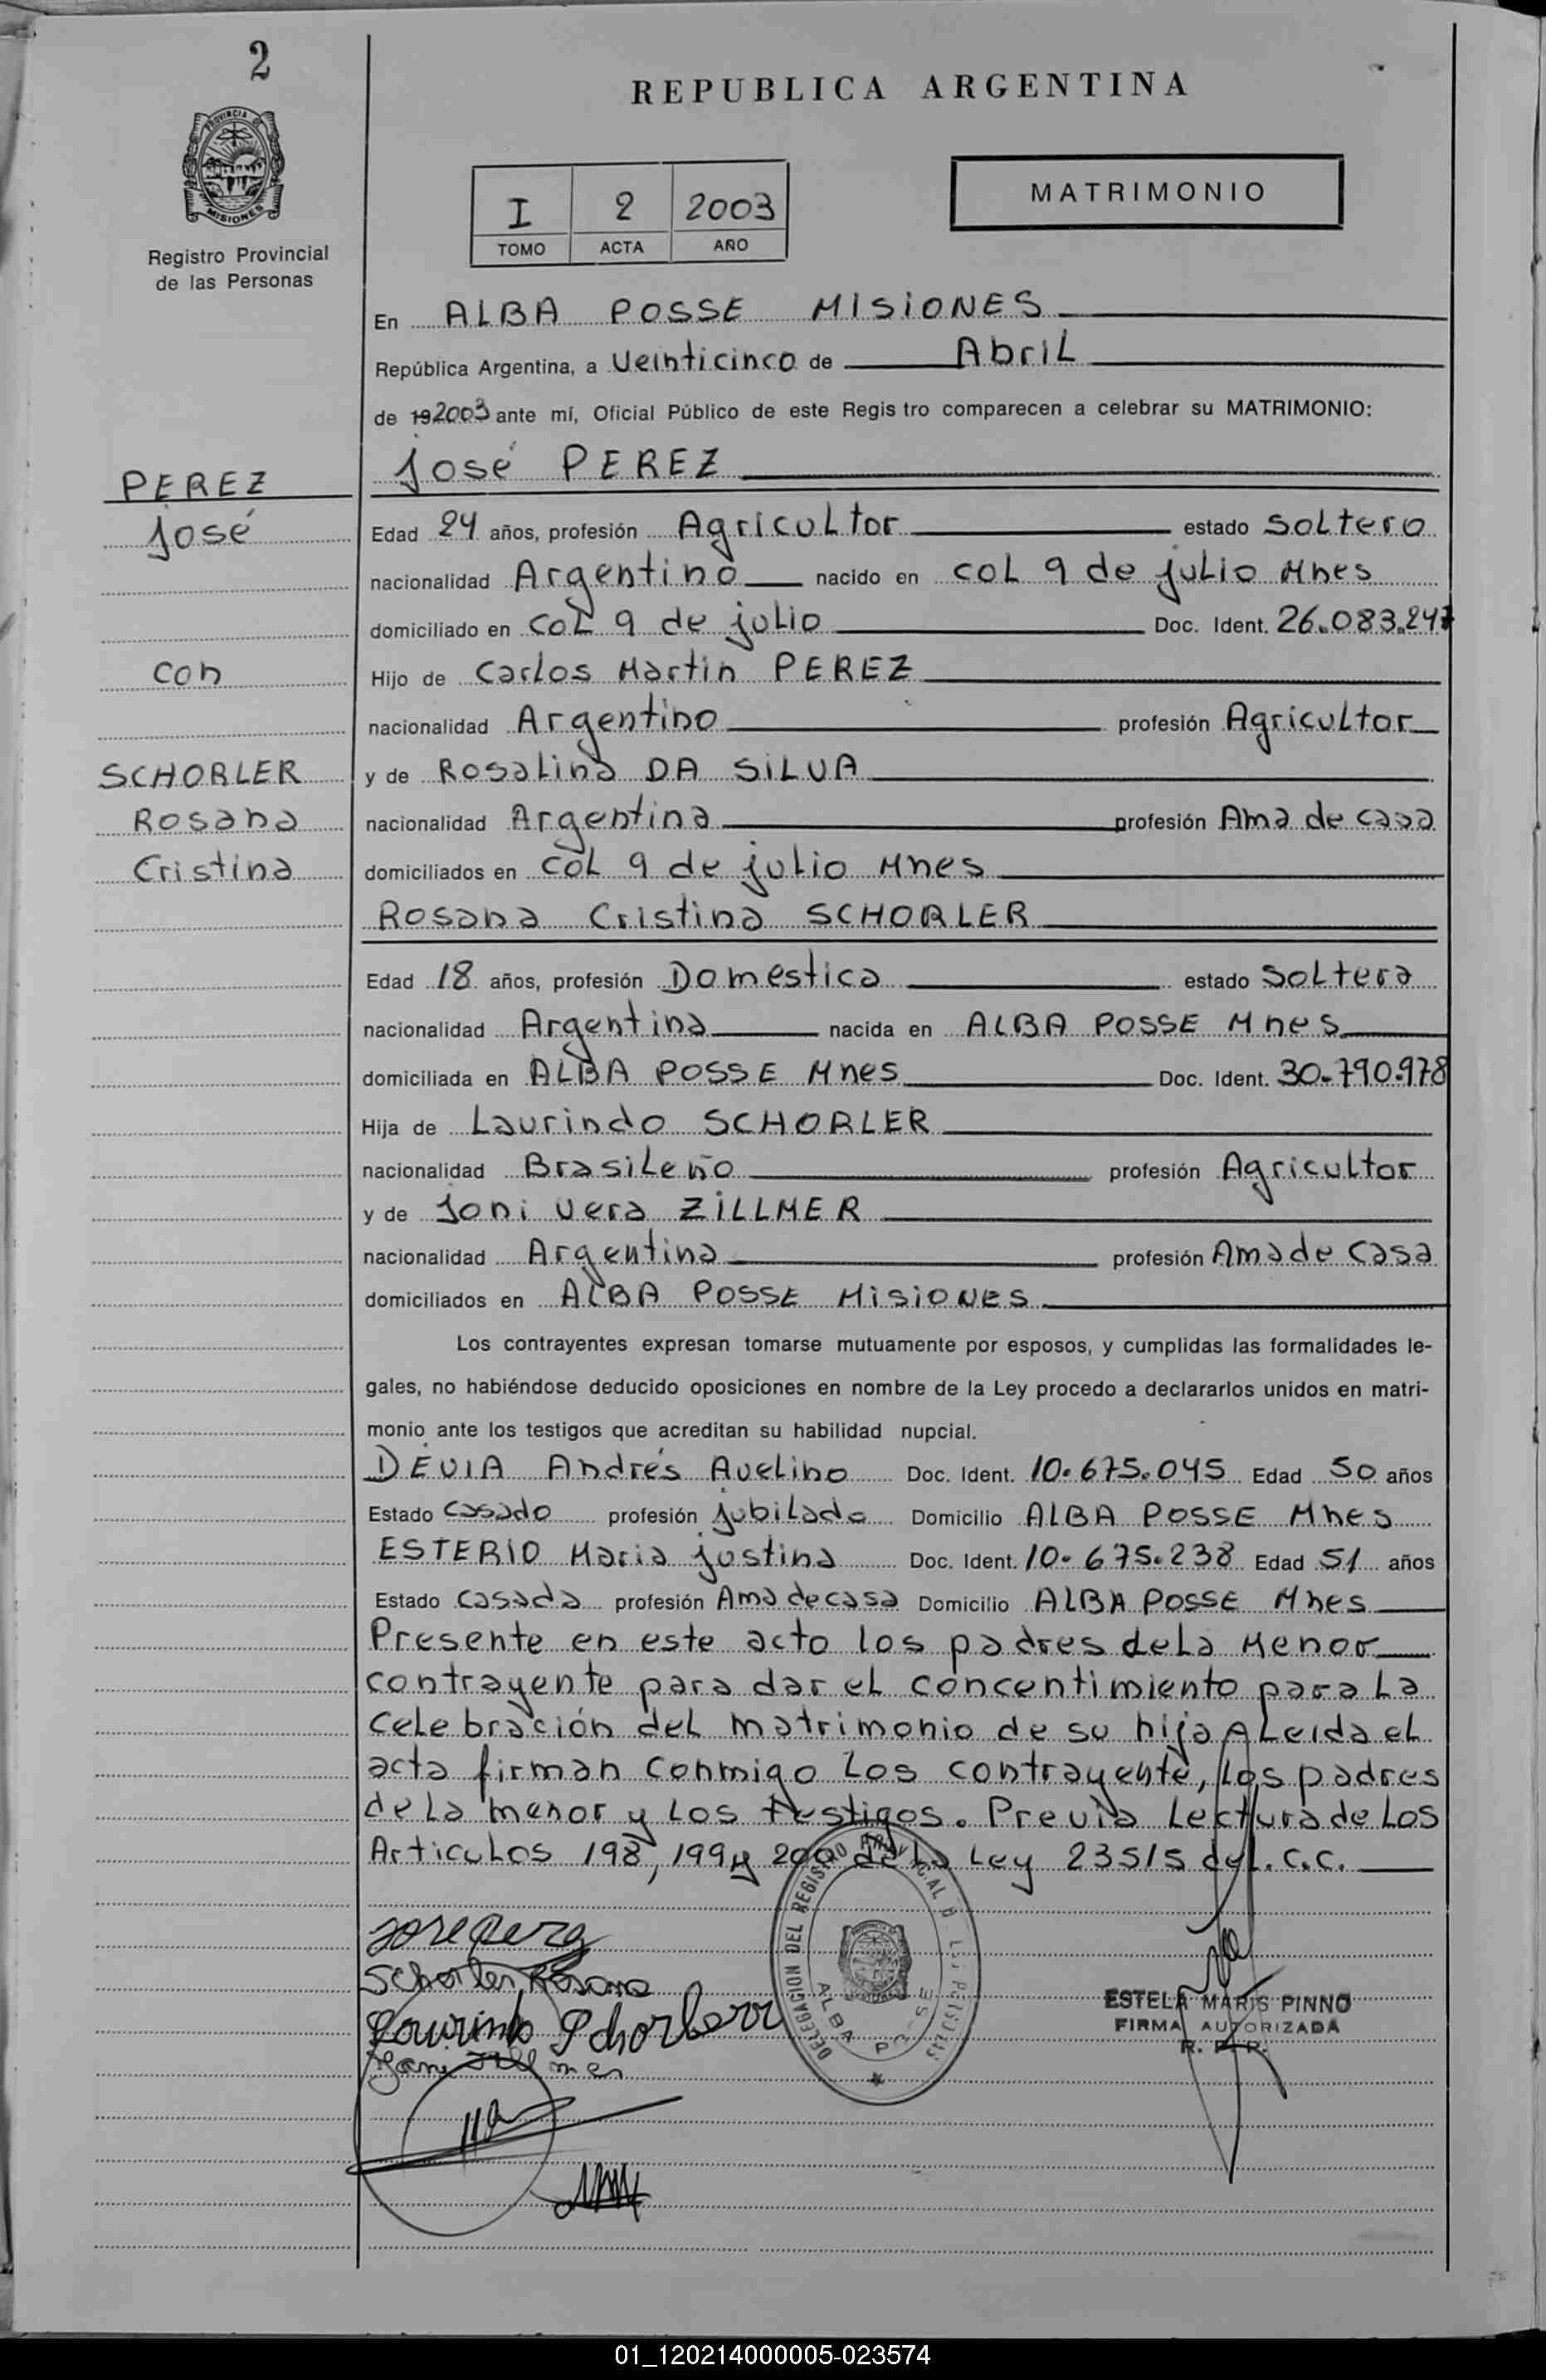 2
REPUBLICA ARGENTINA
PROVINCIA DE
MISIONES
Registro Provincial
de las Personas
I 2 2003
TOMO ACTA AÑO
MATRIMONIO
En ALBA POSSE MISIONES
República Argentina, a Veinticinco de Abril
de 192003 ante mí, Oficial Público de este Regis tro comparecen a celebrar su MATRIMONIO:
PEREZ
José
con
SCHORLER
Rosana
Cristina
José PEREZ
Edad 24 años, profesión Agricultor estado Soltero
nacionalidad Argentino nacido en Col 9 de julio Mnes
domiciliado en Col 9 de julio Doc. Ident. 26.083.247
Hijo de Carlos Martin PEREZ
nacionalidad Argentino profesión Agricultor
y de Rosalina DA SILVA
nacionalidad Argentina profesión Ama de casa
domiciliados en Col 9 de julio Mnes
Rosana Cristina SCHORLER
Edad 18 años, profesión Domestica estado Soltera
nacionalidad Argentina nacida en ALBA POSSE Mnes
domiciliada en ALBA POSSE Mnes Doc. Ident. 30.790.978
Hija de Laurindo SCHORLER
nacionalidad Brasileño profesión Agricultor
y de Joni Vera ZILLMER
nacionalidad Argentina profesión Ama de Casa
domiciliados en ALBA POSSE MISIONES
Los contrayentes expresan tomarse mutuamente por esposos, y cumplidas las formalidades le-
gales, no habiéndose deducido oposiciones en nombre de la Ley procedo a declararlos unidos en matri-
monio ante los testigos que acreditan su habilidad nupcial.
DEVIA Andrés Avelino Doc. Ident. 10.675.045 Edad 50 años
Estado Casado profesión jubilado Domicilio ALBA POSSE Mnes
ESTERIO Maria justina Doc. Ident. 10.675.238 Edad 51 años
Estado Casada profesión Ama de casa Domicilio ALBA POSSE Mnes
Presente en este acto los padres de la Menor
contrayente para dar el concentimiento para La
celebración del matrimonio de su hija ALeida el
acta firman conmigo Los contrayente, los padres
de la menor y Los testigos. Previa Lectura de Los
Articulos 198, 199 y 200 de la Ley 23515 del. C.C.
Schorler Rosana
Laurindo Schorler
DELEGACION DEL REGISTRO PROVINCIAL D LAS PERSONAS
ALBA POSSE
ESTELA MARIS PINNO
FIRMA AUTORIZADA
R. P. P.
01_120214000005-023574